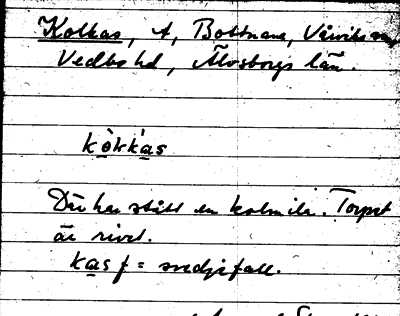 Kolkas, t, Bottnane, Vårviks sn,
Vedbo hd, Älvsborgs län.
kòkkás
Där har stått en kolmila. Torpet
är rivet.
kas f = svedjefall.